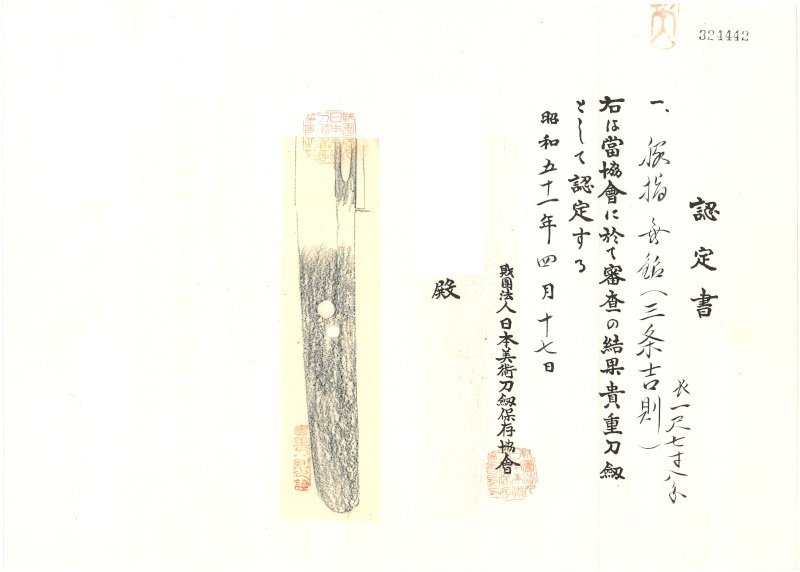 324442
認定書
一、脇指 無銘（三条吉則）
長一尺七寸八分
右は當協會に於て審査の結果貴重刀劔
として認定する
昭和五十一年四月十七日
財団法人日本美術刀劔保存協會
殿